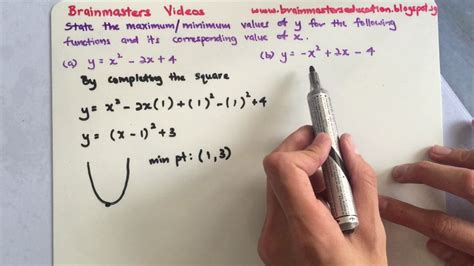 Brainmasters Videos www.brainmasterseducation.blogspot.sg
State the maximum/minimum values of y for the following
functions and its corresponding value of x.
(a) y = x² - 2x + 4 (b) y = -x² + 2x - 4
By completing the square
y = x² - 2x(1) + (1)² - (1)² + 4
y = (x - 1)² + 3
min pt: (1, 3)